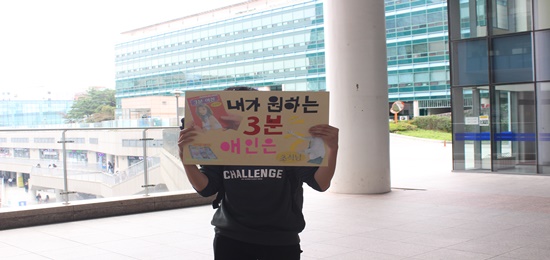 내가 원하는
3분
애인은
CHALLENGE